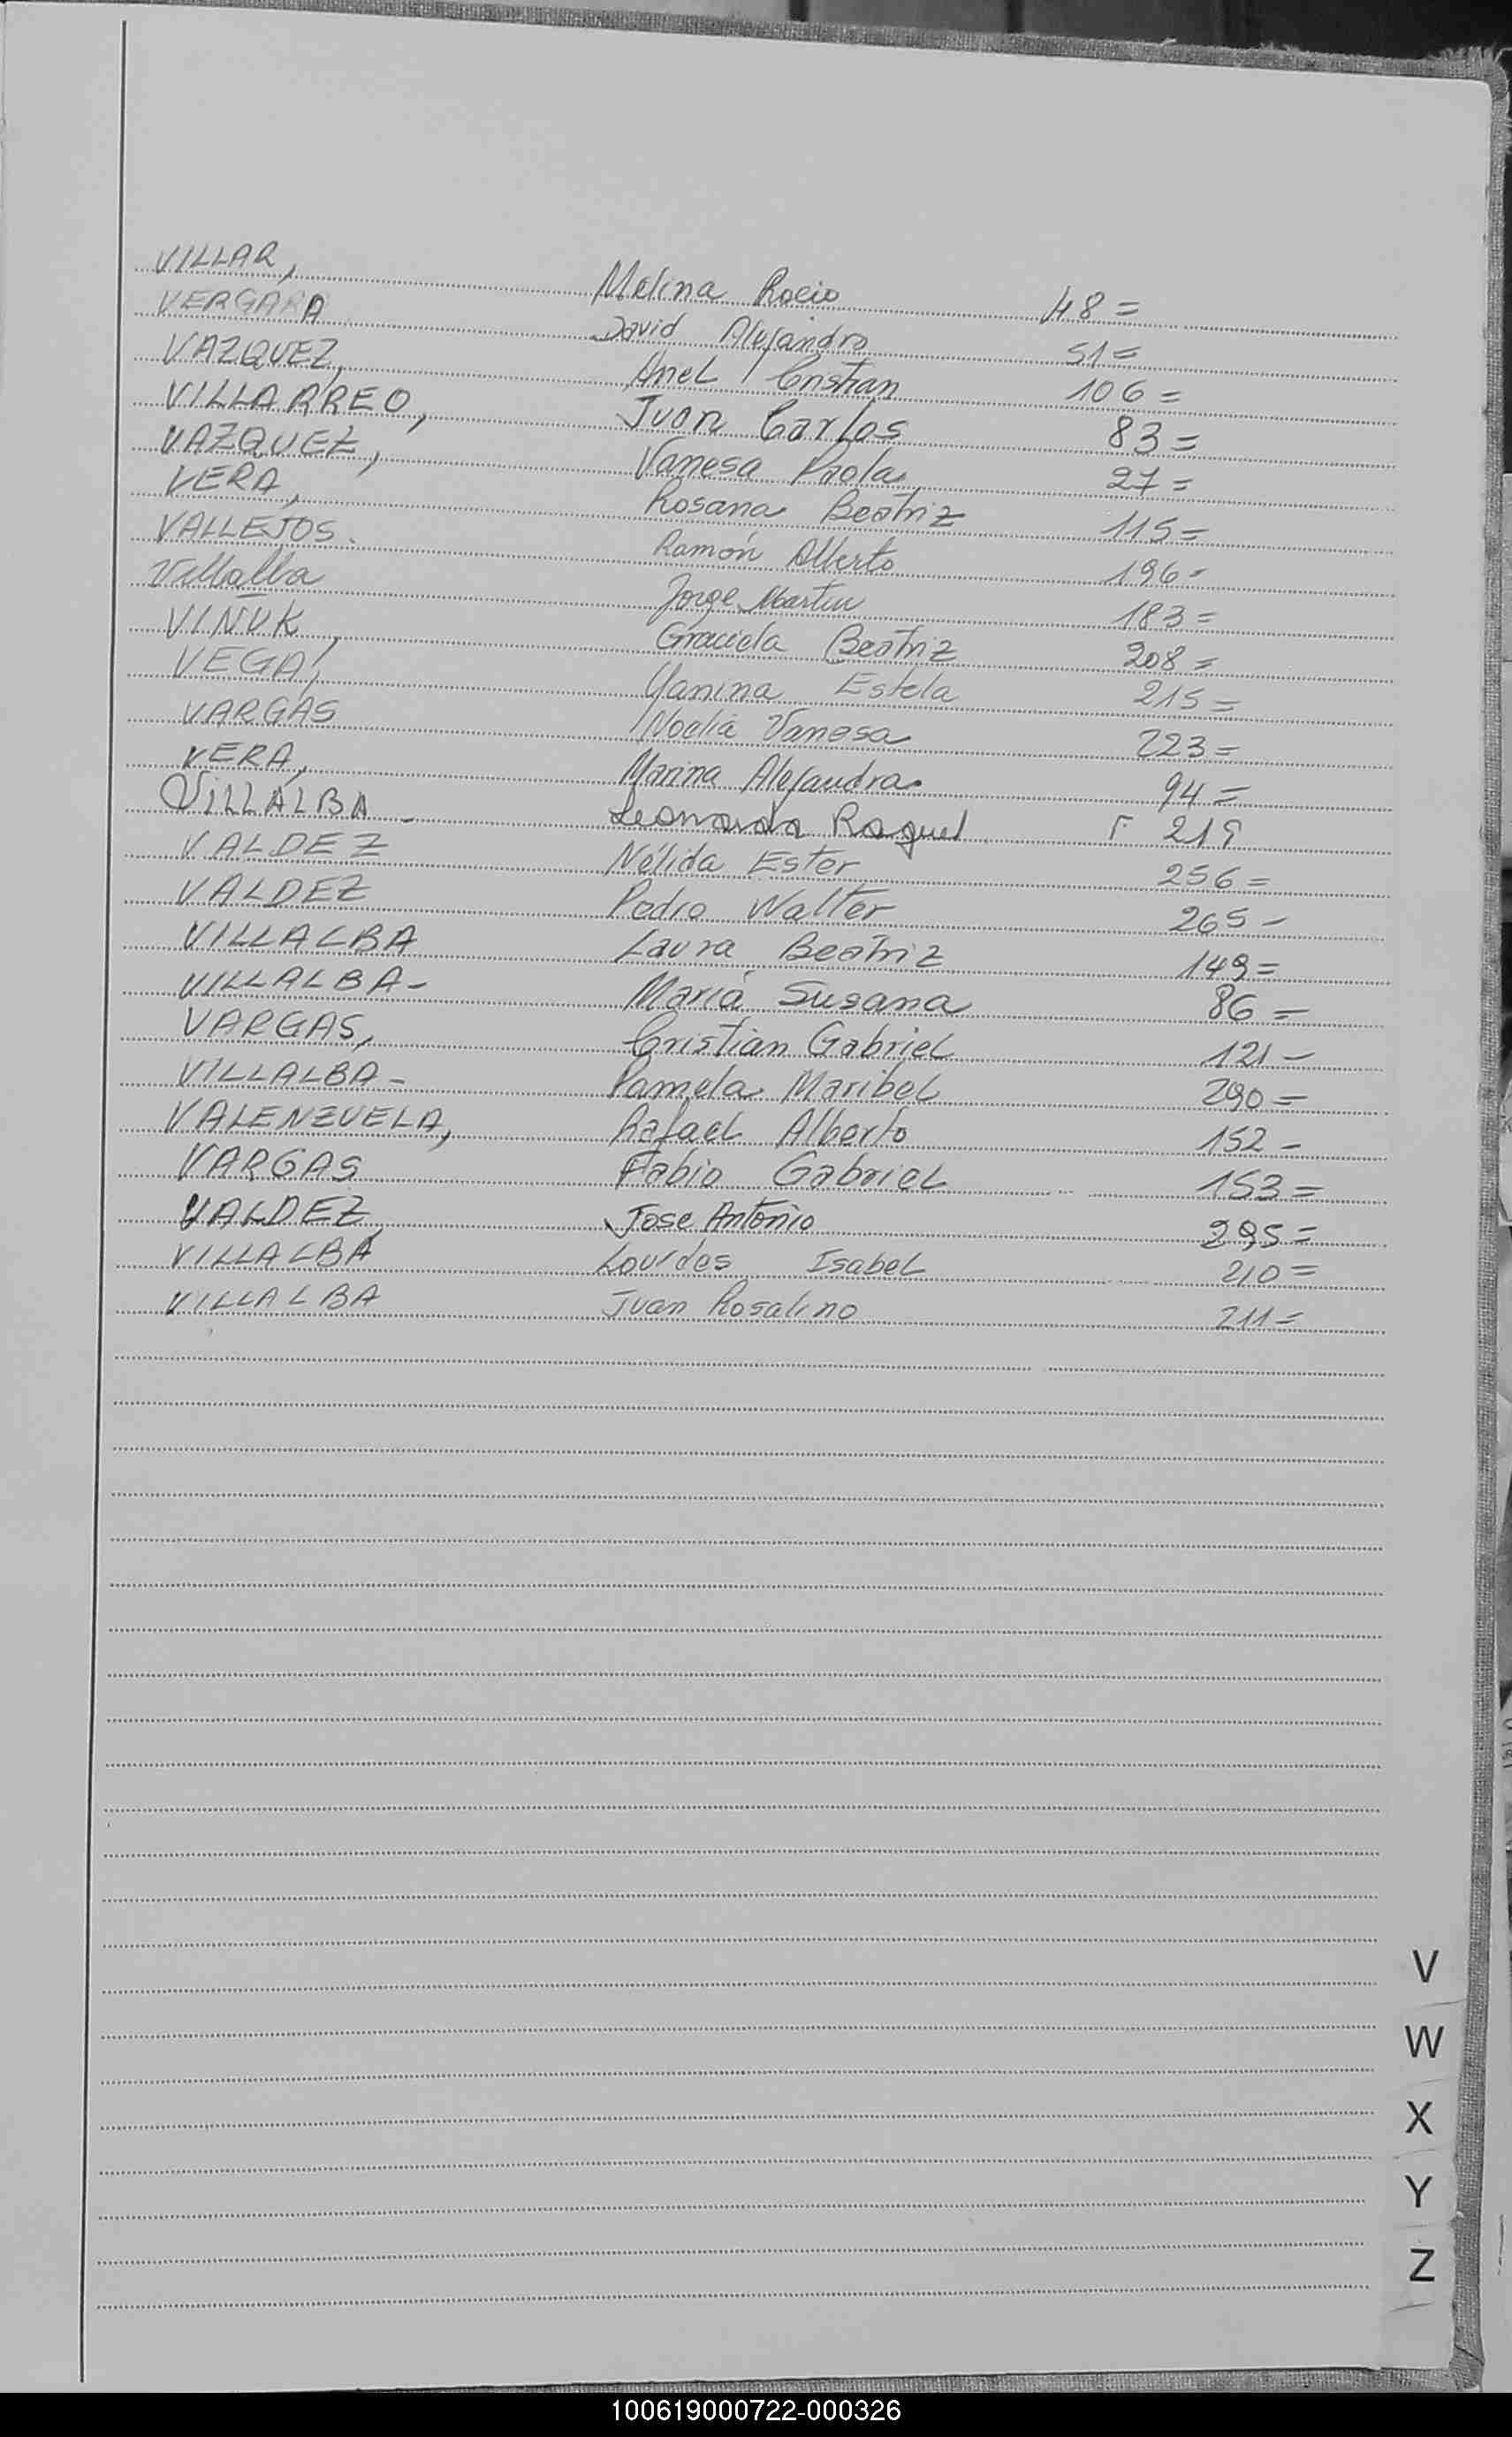 VILLAR, Melina Rocio 48=
VERGARA David Alejandro 51=
VAZQUEZ, Ariel Cristian 106=
VILLARREO, Juan Carlos 83=
VAZQUEZ, Vanesa Paola 27=
VERA, Rosana Beatriz 115=
VALLEJOS. Ramón Alberto 196=
Villalba Jorge Martin 183=
VINUK, Graciela Beatriz 208=
VEGA, Yanina Estela 215=
VARGAS Noelia Vanesa 223=
VERA, Marina Alejandra 94=
VILLALBA - Leonarda Raquel F 219
VALDEZ Nélida Ester 256=
VALDEZ Pedro Walter 265-
VILLALBA Laura Beatriz 149=
VILLALBA- María Susana 86=
VARGAS, Cristian Gabriel 121-
VILLALBA- Pamela Maribel 290=
VALENZUELA, Rafael Alberto 152-
VARGAS Fabio Gabriel 153=
VALDEZ, Jose Antonio 295=
VILLALBA Lourdes Isabel 210=
VILLALBA Juan Rosalino 211=
V
W
X
Y
Z
100619000722-000326